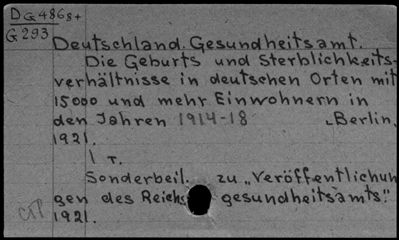 DG 4868+
G 293
Deutschland. Gesundheitsamt.
Die Geburts und Sterblichkeits-
verhältnisse in deutschen Orten mit
15000 und mehr Einwohnern in
den Jahren 1914-18 Berlin,
1921.
1 T.
Sonderbeil. zu „Veröffentlichun
gen des Reichs gesundheitsamts."
1921.